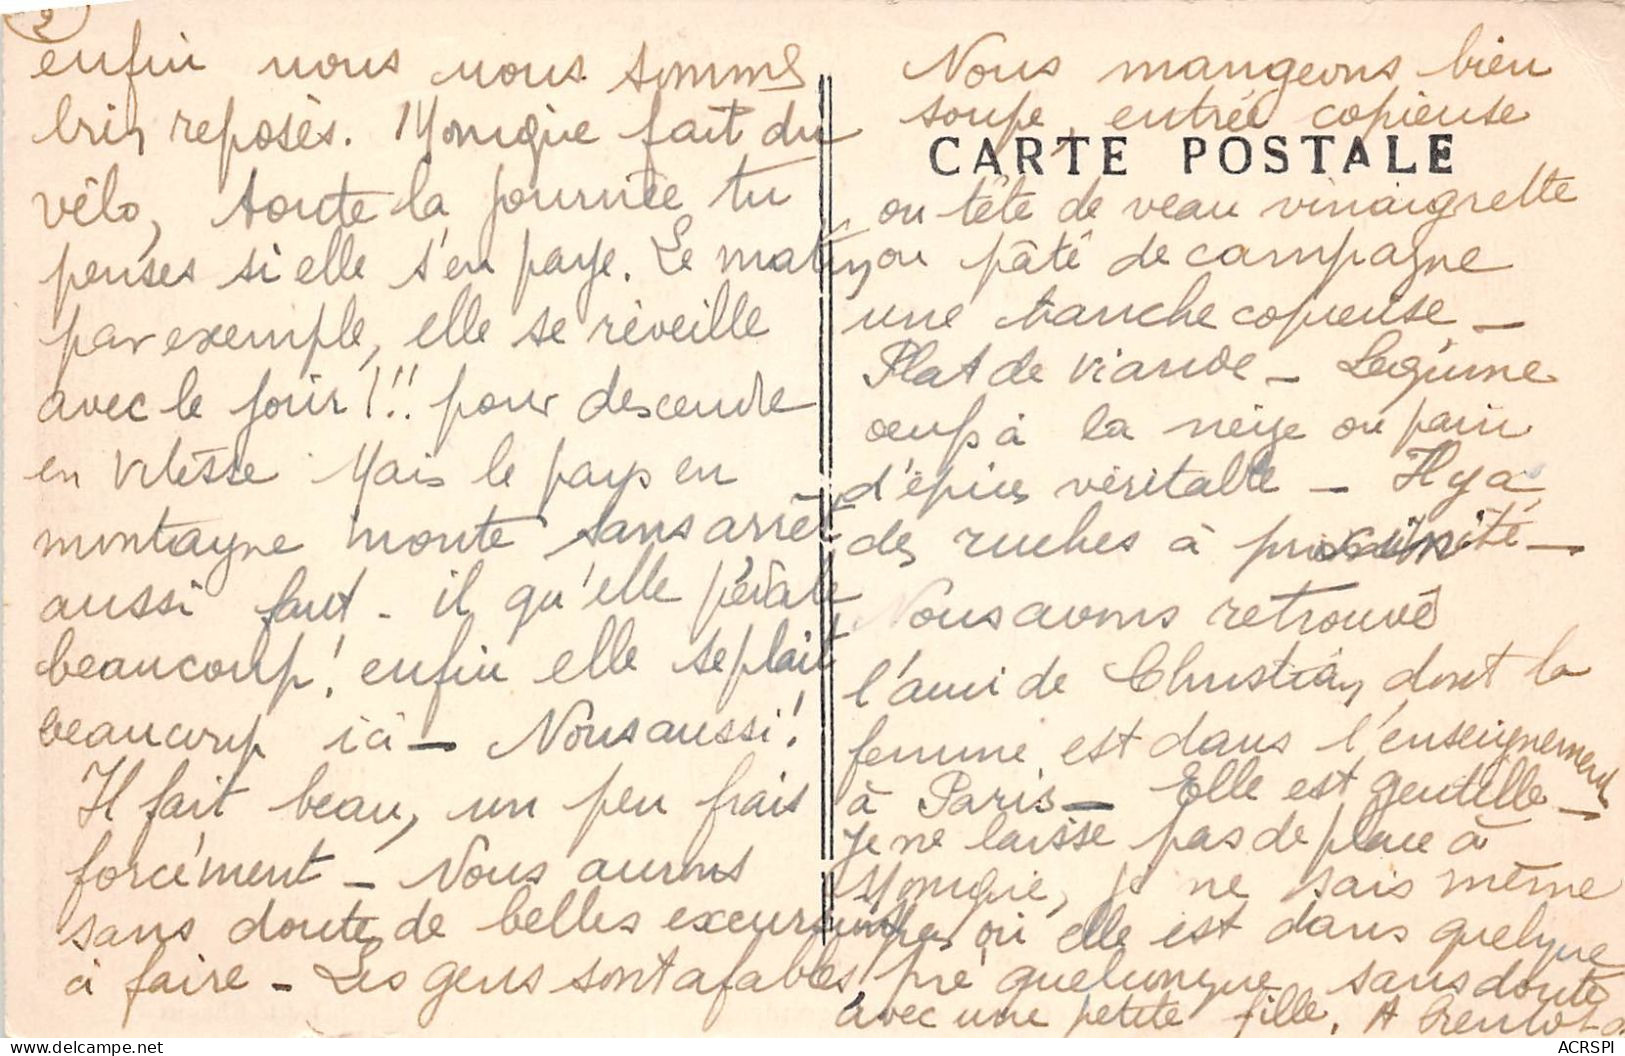 2
enfin nous nous sommes
bien reposés. Monique fait du
vélo, toute la journée tu
penses si elle s'en paye. Le matin
par exemple, elle se réveille
avec le jour!!! pour descendre
en vitesse. Mais le pays en
montagne monte sans arrêt
aussi faut-il qu'elle pédale
beaucoup! enfin elle se plait
beaucoup ici — Nous aussi!
Il fait beau, un peu frais
forcément — Nous aurons
sans doute de belles excursions
à faire — Les gens sont afables
Nous mangeons bien
soupe, entrée copieuse
CARTE POSTALE
ou tête de veau vinaigrette
ou pâté de campagne
une tranche copieuse —
Plat de viande — Légume
oeufs à la neige ou pain
d'épices véritable — Il y a
des ruches à proximité —
Nous avons retrouvé
l'ami de Christian, dont la
femme est dans l'enseignement
à Paris — Elle est gentille —
Je ne laisse pas de place à
Monique, je ne sais même
pas où elle est dans quelque
pré quelconque sans doute
avec une petite fille. A bientot
ACRSPI